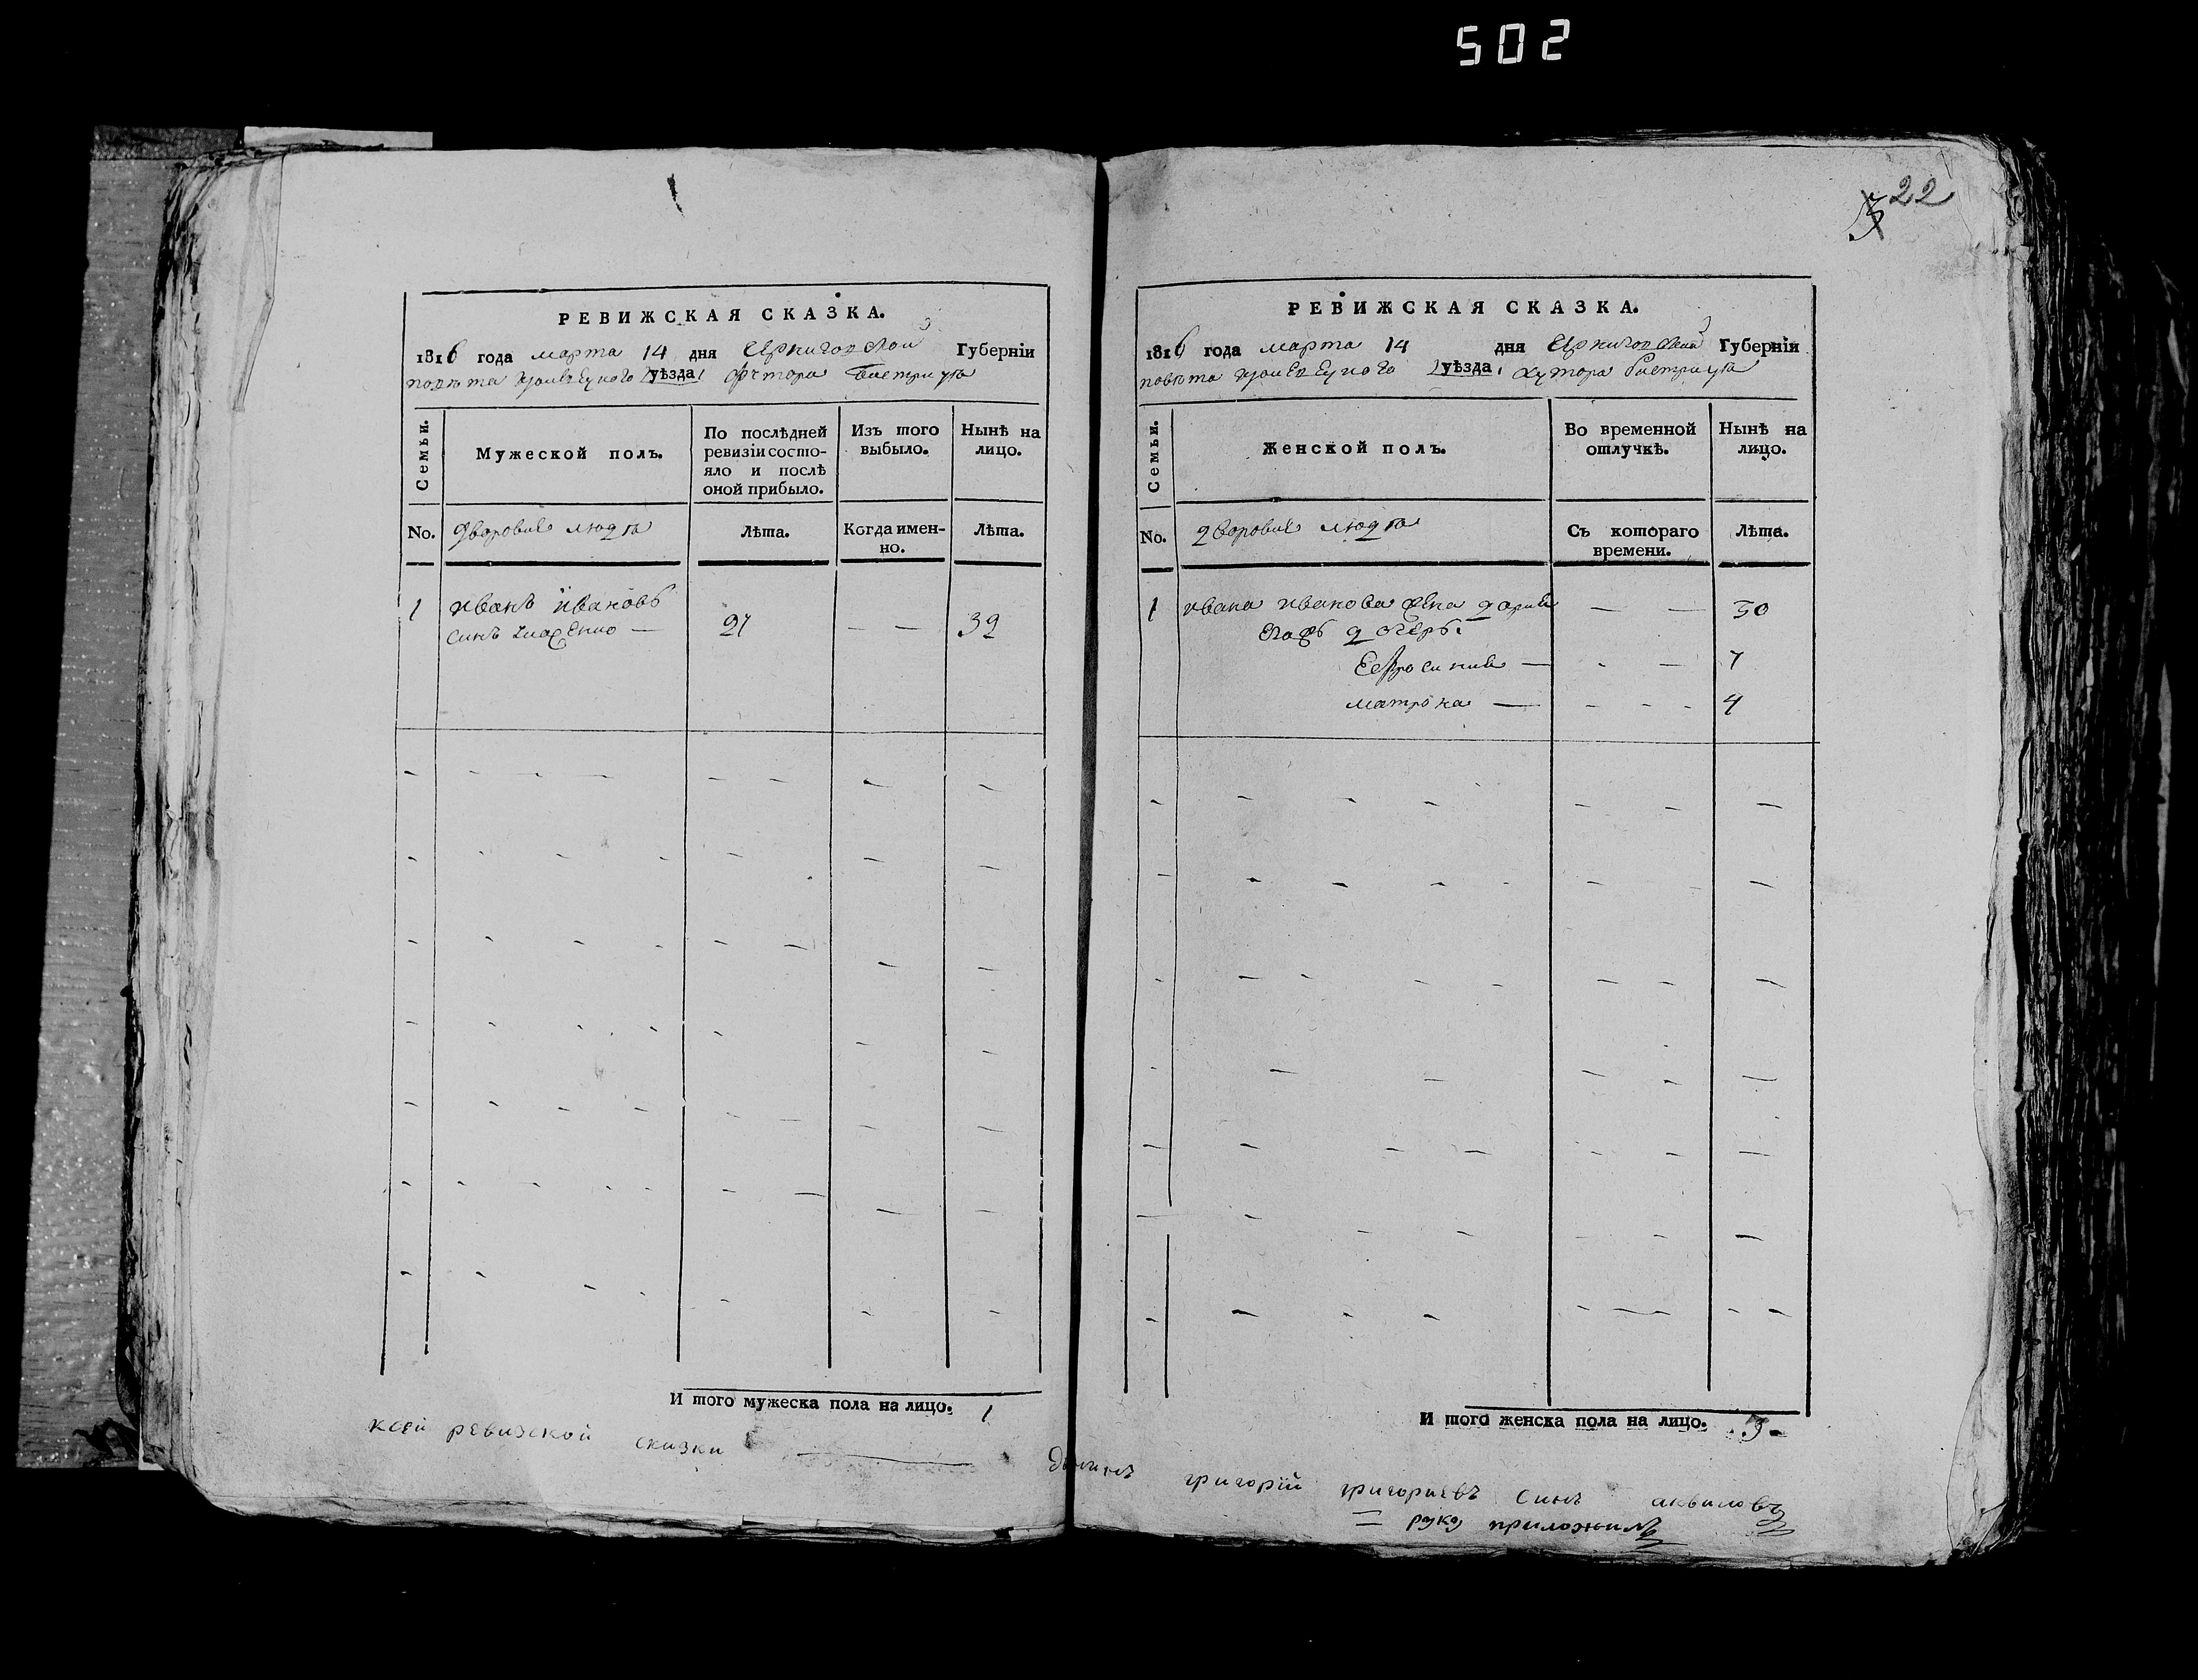 502
22
РЕВИЖСКАЯ СКАЗКА.
1816 года марта 14 дня Черниговской Губерніи
повѣта Кролевецкого уѣзда хутора Бистрика
Семьи. Мужеской полъ. По послѣдней ревизіи состояло и послѣ оной прибыло. Изъ того выбыло. Нынѣ на лицо.
No. Дворовие людѣ Лѣта. Когда именно. Лѣта.
1 иванъ ивановъ
синъ 21 — — 32
И того мужеска пола на лицо. 1
ксей ревизской сказки
РЕВИЖСКАЯ СКАЗКА.
1816 года марта 14 дня Черниговской Губерніи
повѣта Кролевецкого уѣзда хутора Бистрика
Семьи. Женской полъ. Во временной отлучкѣ. Нынѣ на лицо.
No. дворовие людѣ Съ котораго времени. Лѣта.
1 ивана иванова жена дария — — 30
дочери
Ефросиния — - — 7
матрона — - - - 4
И того женска пола на лицо. 3
григорій григориевъ синъ
руку приложилъ